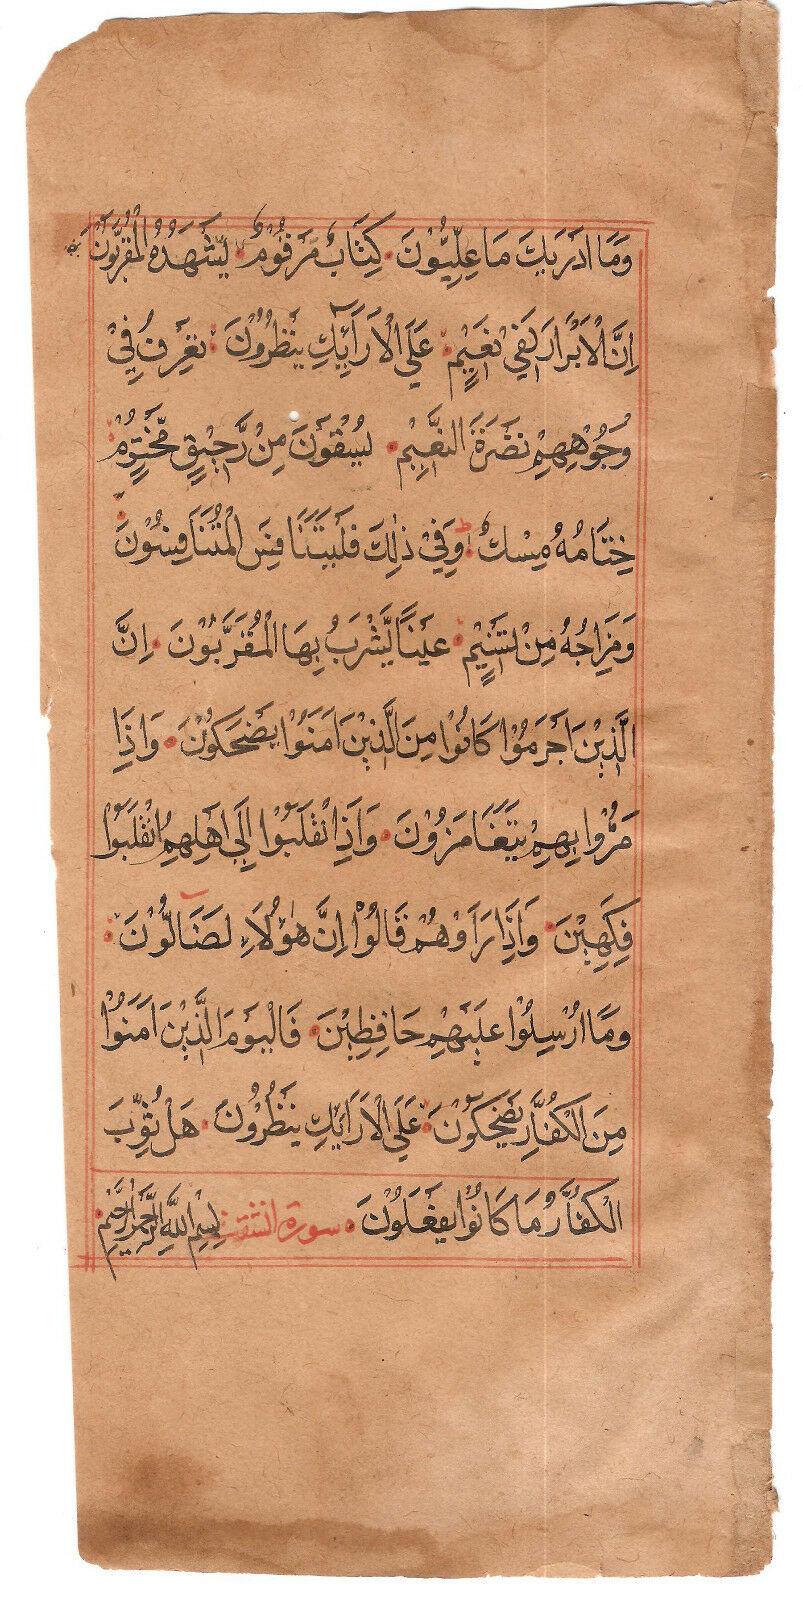 وَمَا اَدْرٰىكَ مَا عِلِّيُّوْنَ كِتَابٌ مَرْقُوْمٌ يَشْهَدُهُ الْمُقَرَّبُوْنَ
اِنَّ الْاَبْرَارَ لَفِيْ نَعِيْمٍ عَلَى الْاَرَآئِكِ يَنْظُرُوْنَ تَعْرِفُ فِيْ
وُجُوْهِهِمْ نَضْرَةَ النَّعِيْمِ يُسْقَوْنَ مِنْ رَّحِيْقٍ مَّخْتُوْمٍ
خِتَامُهُ مِسْكٌ ط وَفِيْ ذٰلِكَ فَلْيَتَنَافَسِ الْمُتَنَافِسُوْنَ
وَمِزَاجُهُ مِنْ تَسْنِيْمٍ عَيْنًا يَّشْرَبُ بِهَا الْمُقَرَّبُوْنَ اِنَّ
الَّذِيْنَ اَجْرَمُوْا كَانُوْا مِنَ الَّذِيْنَ اٰمَنُوْا يَضْحَكُوْنَ وَاِذَا
مَرُّوْا بِهِمْ يَتَغَامَزُوْنَ وَاِذَا انْقَلَبُوْا اِلٰى اَهْلِهِمُ انْقَلَبُوْا
فَكِهِيْنَ وَاِذَا رَاَوْهُمْ قَالُوْا اِنَّ هٰؤُلَاءِ لَضَالُّوْنَ
وَمَا اُرْسِلُوْا عَلَيْهِمْ حَافِظِيْنَ فَالْيَوْمَ الَّذِيْنَ اٰمَنُوْا
مِنَ الْكُفَّارِ يَضْحَكُوْنَ عَلَى الْاَرَآئِكِ يَنْظُرُوْنَ هَلْ ثُوِّبَ
الْكُفَّارُ مَا كَانُوْا يَفْعَلُوْنَ سورة انشقت بِسْمِ اللّٰهِ الرَّحْمٰنِ الرَّحِيْمِ